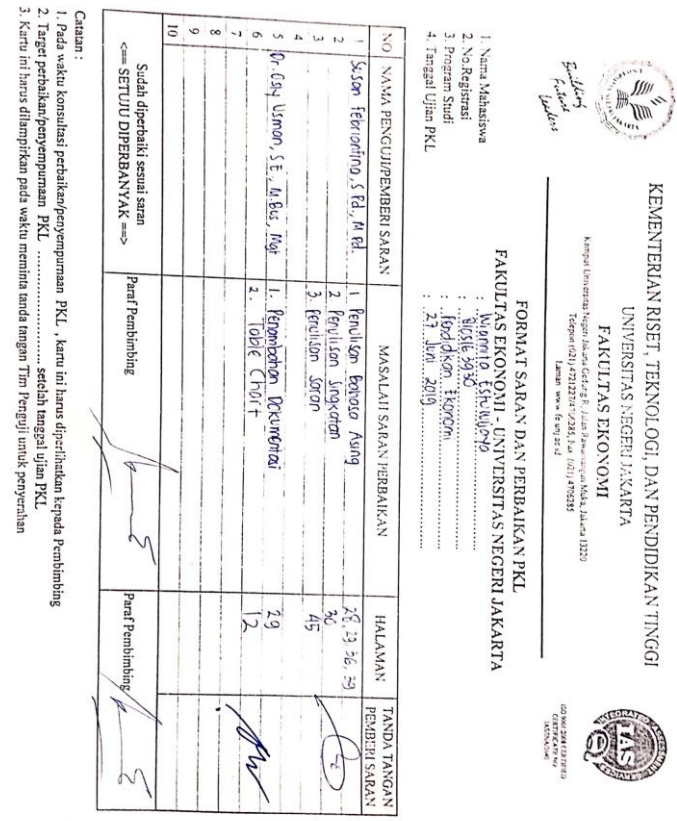 Building
Future
Leaders
KEMENTERIAN RISET, TEKNOLOGI, DAN PENDIDIKAN TINGGI
UNIVERSITAS NEGERI JAKARTA
FAKULTAS EKONOMI
Kampus Universitas Negeri Jakarta Gedung R, Jalan Rawamangun Muka, Jakarta 13220
Telepon (021) 4721227/4706285, Fax: (021) 4706285
Laman: www.fe.unj.ac.id
FORMAT SARAN DAN PERBAIKAN PKL
FAKULTAS EKONOMI - UNIVERSITAS NEGERI JAKARTA
1. Nama Mahasiswa :
2. No.Registrasi :
3. Program Studi : Pendidikan Ekonomi
4. Tanggal Ujian PKL : 27 Juni 2019
NO NAMA PENGUJI/PEMBERI SARAN MASALAH SARAN PERBAIKAN HALAMAN TANDA TANGAN PEMBERI SARAN
1 Susan Febriantina, S Pd., M Pd. 1 Penulisan Bahasa Asing 28, 29, 36, 39
2 2 Penulisan Singkatan 30
3 3. Penulisan Saran 45
4
5 Dr. Osly Usman, S E., M.Bus, Mgt 1. Penambahan Dokumentasi 29
6 2. Table Chart 12
7
8
9
10
Sudah diperbaiki sesuai saran
<=== SETUJU DIPERBANYAK ==>
Paraf Pembimbing
Paraf Pembimbing
Catatan :
1. Pada waktu konsultasi perbaikan/penyempurnaan PKL , kartu ini harus diperlihatkan kepada Pembimbing
2. Target perbaikan/penyempurnaan PKL ........................ setelah tanggal ujian PKL
3. Kartu ini harus dilampirkan pada waktu meminta tanda tangan Tim Penguji untuk penyerahan